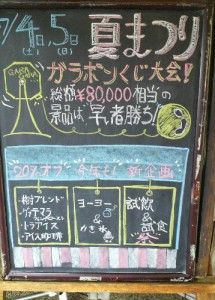 7/4(土),5(日) 夏まつり
ガラポンくじ大会!
総額¥80,000相当の
景品は、早い者勝ち!
20%オフ 今年も! 新企画
・樹ブレンド
・グァテマラ
・トラアイス
・アイス珈琲
ヨーヨー
&
かき氷
試飲
&
試食
祭